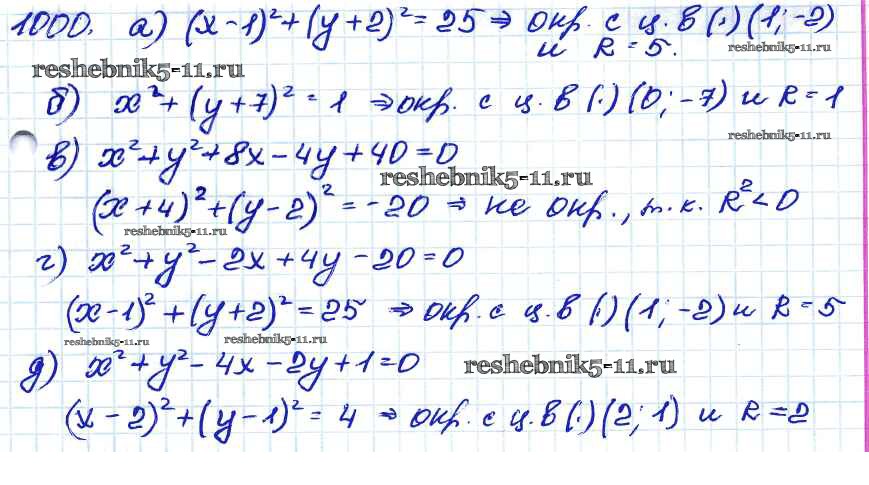 1000. а) (x-1)²+(y+2)²=25⇒ окр. с ц. в (.) (1; -2)
и R=5.
reshebnik5-11.ru
reshebnik5-11.ru
б) x²+(y+7)²=1 ⇒окр. с ц. в (.) (0; -7) и R=1
reshebnik5-11.ru
в) x²+y²+8x-4y+40=0
reshebnik5-11.ru
(x+4)²+(y-2)²=-20 ⇒ не окр., т.к. R²<0
reshebnik5-11.ru
г) x²+y²-2x+4y-20=0
(x-1)²+(y+2)²=25 ⇒ окр. с ц. в (.) (1; -2) и R=5
reshebnik5-11.ru
reshebnik5-11.ru
д) x²+y²-4x-2y+1=0
reshebnik5-11.ru
(x-2)²+(y-1)²=4 ⇒ окр. с ц. в (.) (2; 1) и R=2